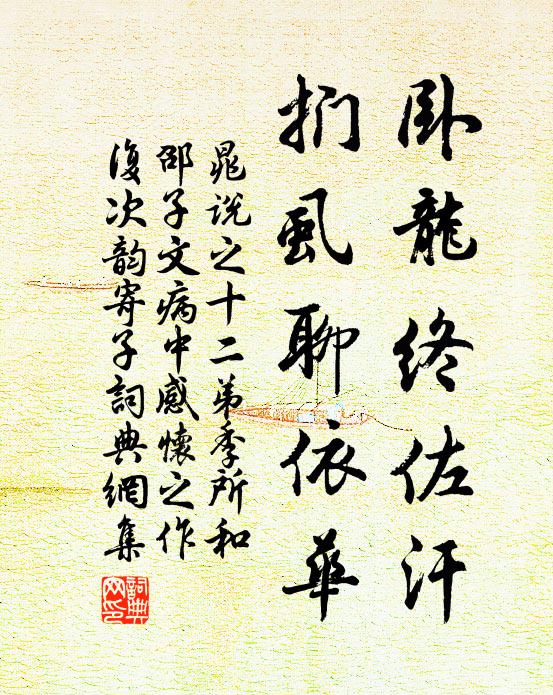 卧龍終佐汗
捫虱聊依華
晁説之十二弟季所和
邵子文病中感懷之作
復次韵寄子詞典網集
詞典
网印